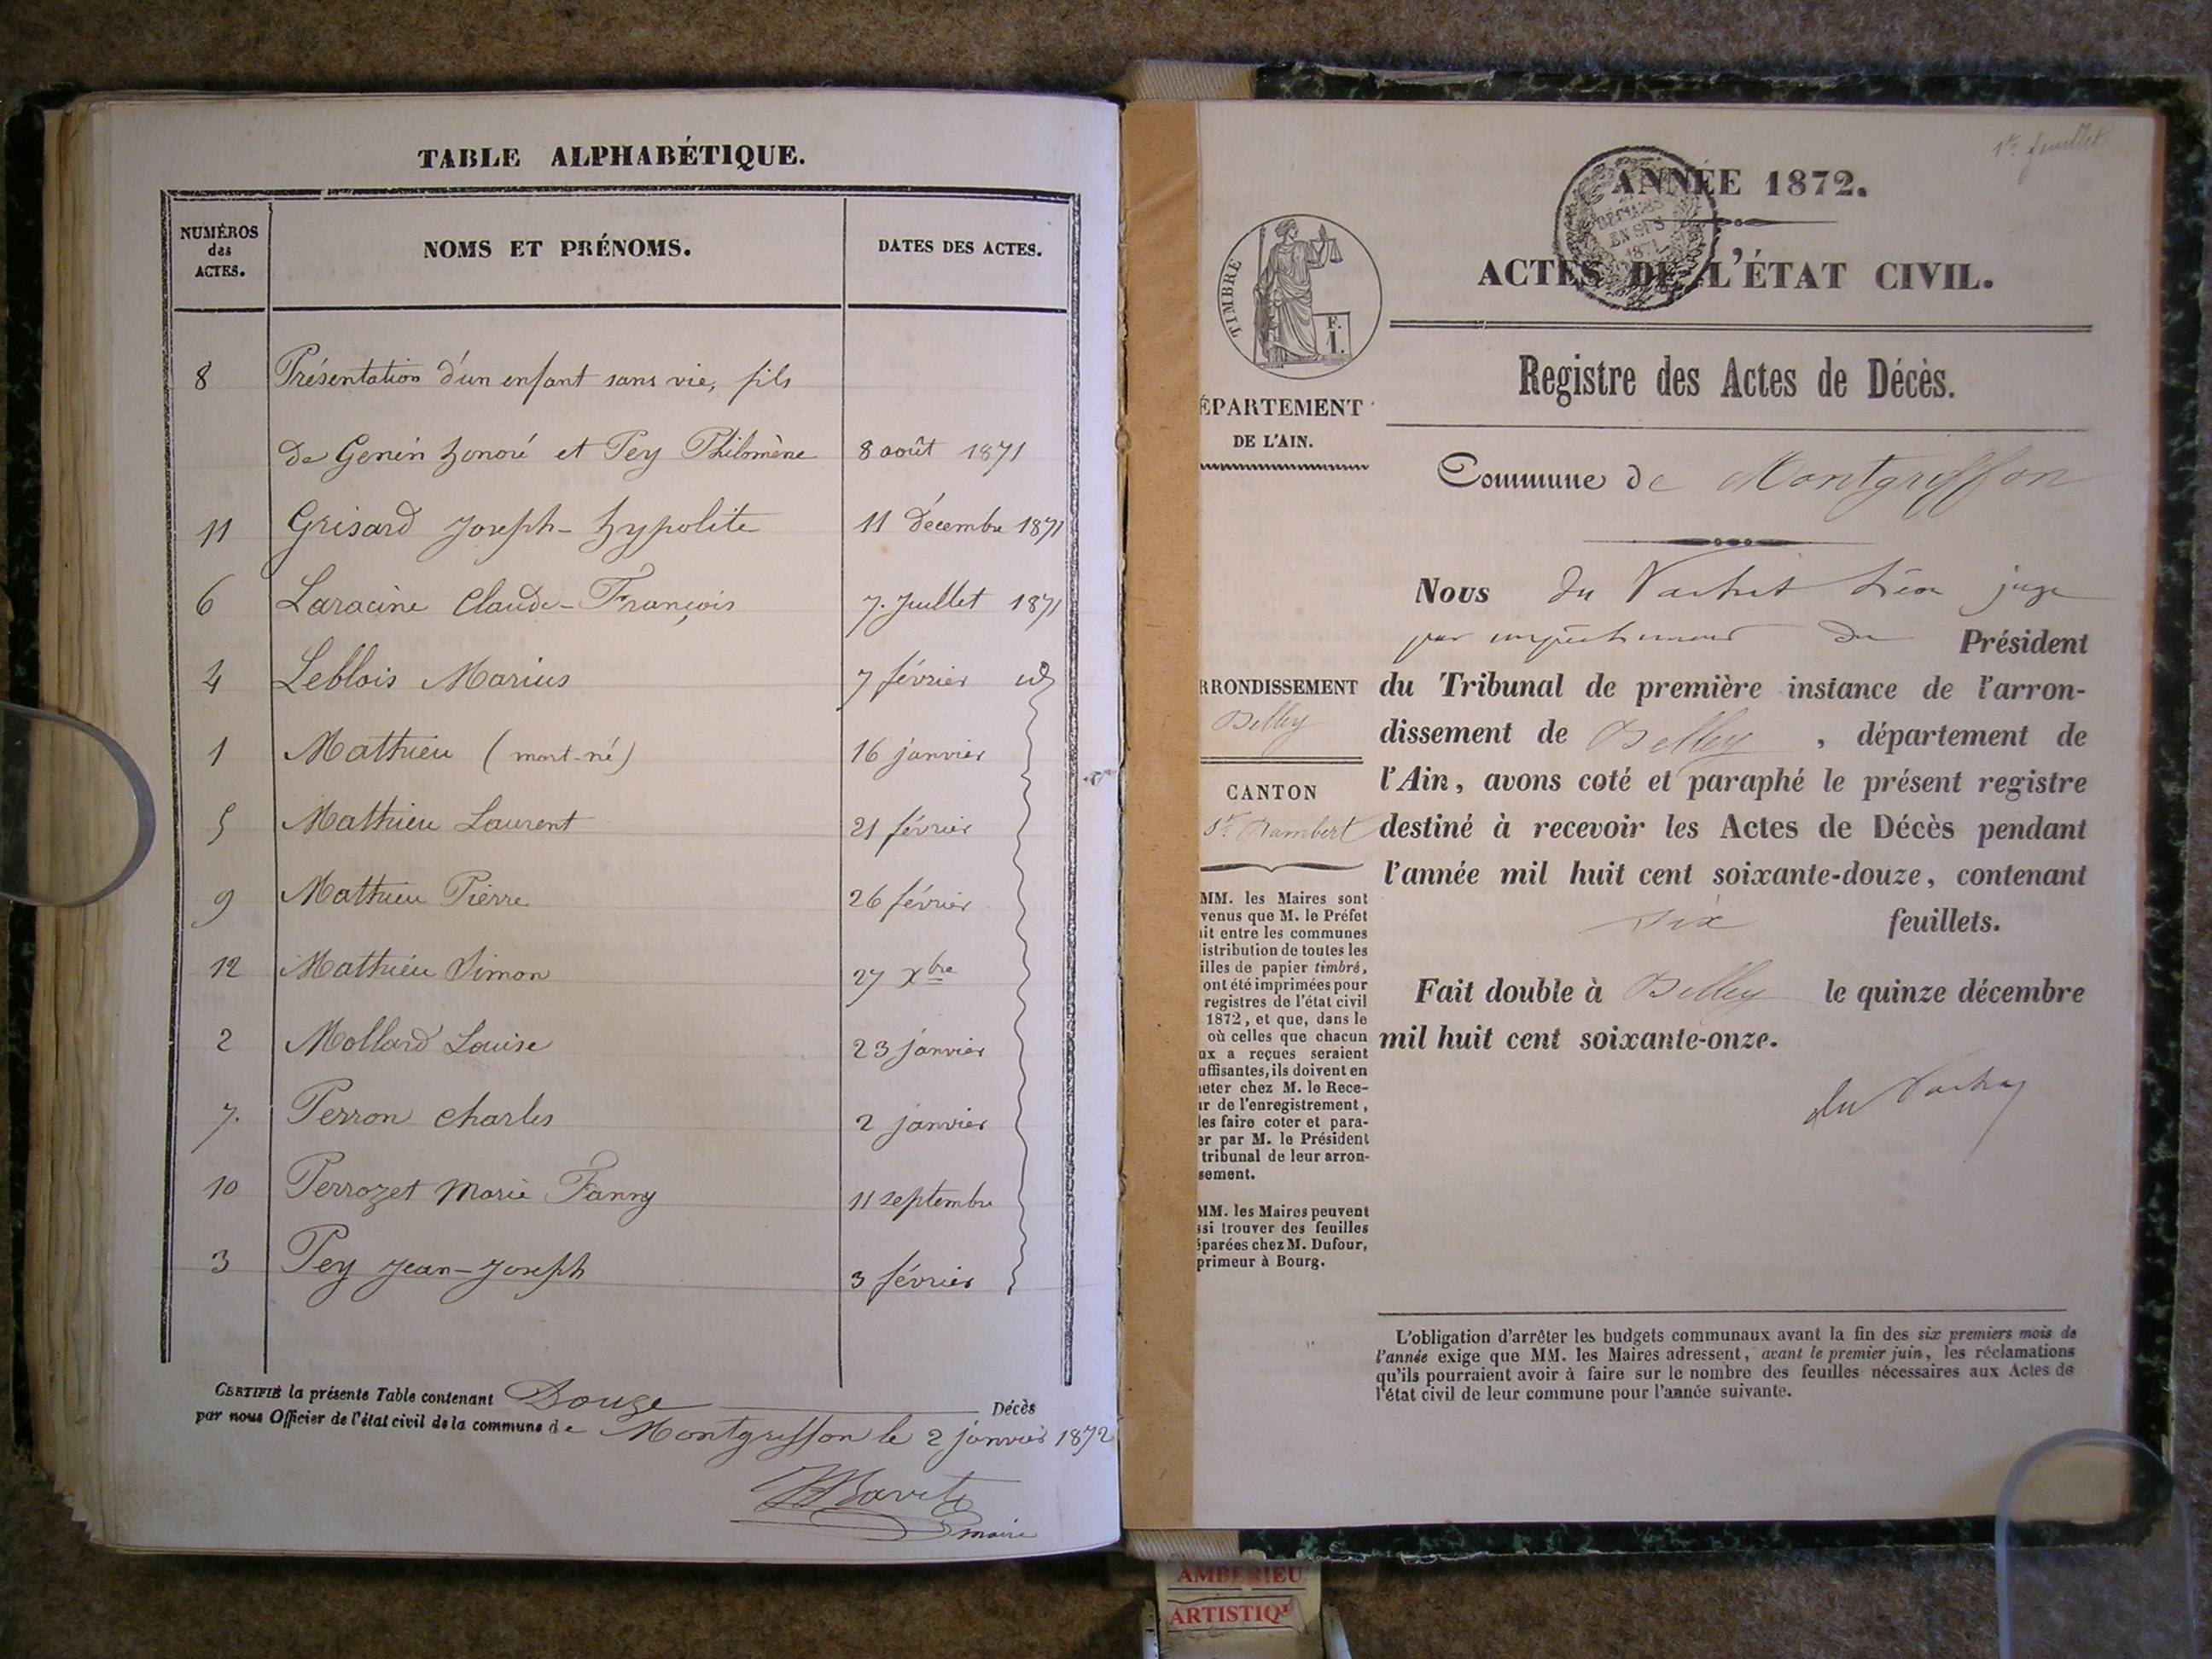 TABLE ALPHABÉTIQUE.
NUMÉROS des ACTES.
NOMS ET PRÉNOMS.
DATES DES ACTES.
8 Présentation d'un enfant sans vie, fils
de Genin honoré et Pey Philomène 8 août 1871
11 Grisard Joseph-hypolite 11 décembre 1871
6 Laracine Claude-François 7. Juillet 1871
4 Leblois Marius 7 février id
1 Mathieu (mort-né) 16 janvier
5 Mathieu Laurent 21 février
9 Mathieu Pierre 26 février
12 Mathieu Simon 27 Xbre
2 Mollard Louise 23 janvier
7. Perron charles 2 janvier
10 Perrozet Marie Fanny 11 septembre
3 Pey Jean-Joseph 3 février
CERTIFIÉ la présente Table contenant Douze Décès
par nous Officier de l'état civil de la commune de Montgriffon le 2 janvier 1872
maire
1er feuillet
ANNÉE 1872.
ACTES DE L'ÉTAT CIVIL.
TIMBRE
F.
1.
EN SUS
1871
ÉPARTEMENT
DE L'AIN.
Registre des Actes de Décès.
Commune de Montgriffon
Nous du Vachat Léon juge
par empêchement du Président
RRONDISSEMENT
Belley
CANTON
St Rambert
du Tribunal de première instance de l'arron-
dissement de Belley, département de
l'Ain, avons coté et paraphé le présent registre
destiné à recevoir les Actes de Décès pendant
l'année mil huit cent soixante-douze, contenant
six feuillets.
Fait double à Belley le quinze décembre
mil huit cent soixante-onze.
du Vachat
MM. les Maires sont
venus que M. le Préfet
it entre les communes
istribution de toutes les
illes de papier timbré,
ont été imprimées pour
registres de l'état civil
1872, et que, dans le
où celles que chacun
ux a reçues seraient
uffisantes, ils doivent en
eter chez M. le Rece-
ur de l'enregistrement,
les faire coter et para-
er par M. le Président
tribunal de leur arron-
sement.
MM. les Maires peuvent
ssi trouver des feuilles
éparées chez M. Dufour,
primeur à Bourg.
L'obligation d'arrêter les budgets communaux avant la fin des six premiers mois de
l'année exige que MM. les Maires adressent, avant le premier juin, les réclamations
qu'ils pourraient avoir à faire sur le nombre des feuilles nécessaires aux Actes de
l'état civil de leur commune pour l'année suivante.
AMBERIEU
ARTISTIQU